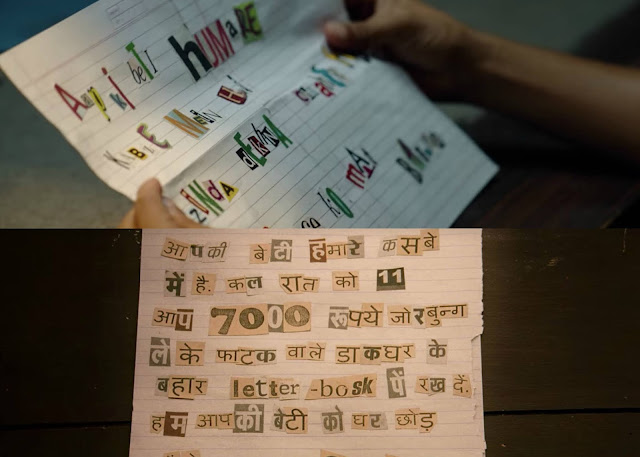 AApKi beTI HUMaRE
KABZE MeiN
ZiNdA dEKHNA
mAr
आपकी बेटी हमारे कसबे
में है. कल रात को 11
आप 7000 रूपये जोरबुन्ग
ले के फाटक वाले डाकघर के
बहार letter-bosk पें रख दें.
हम आपकी बेटी को घर छोड़